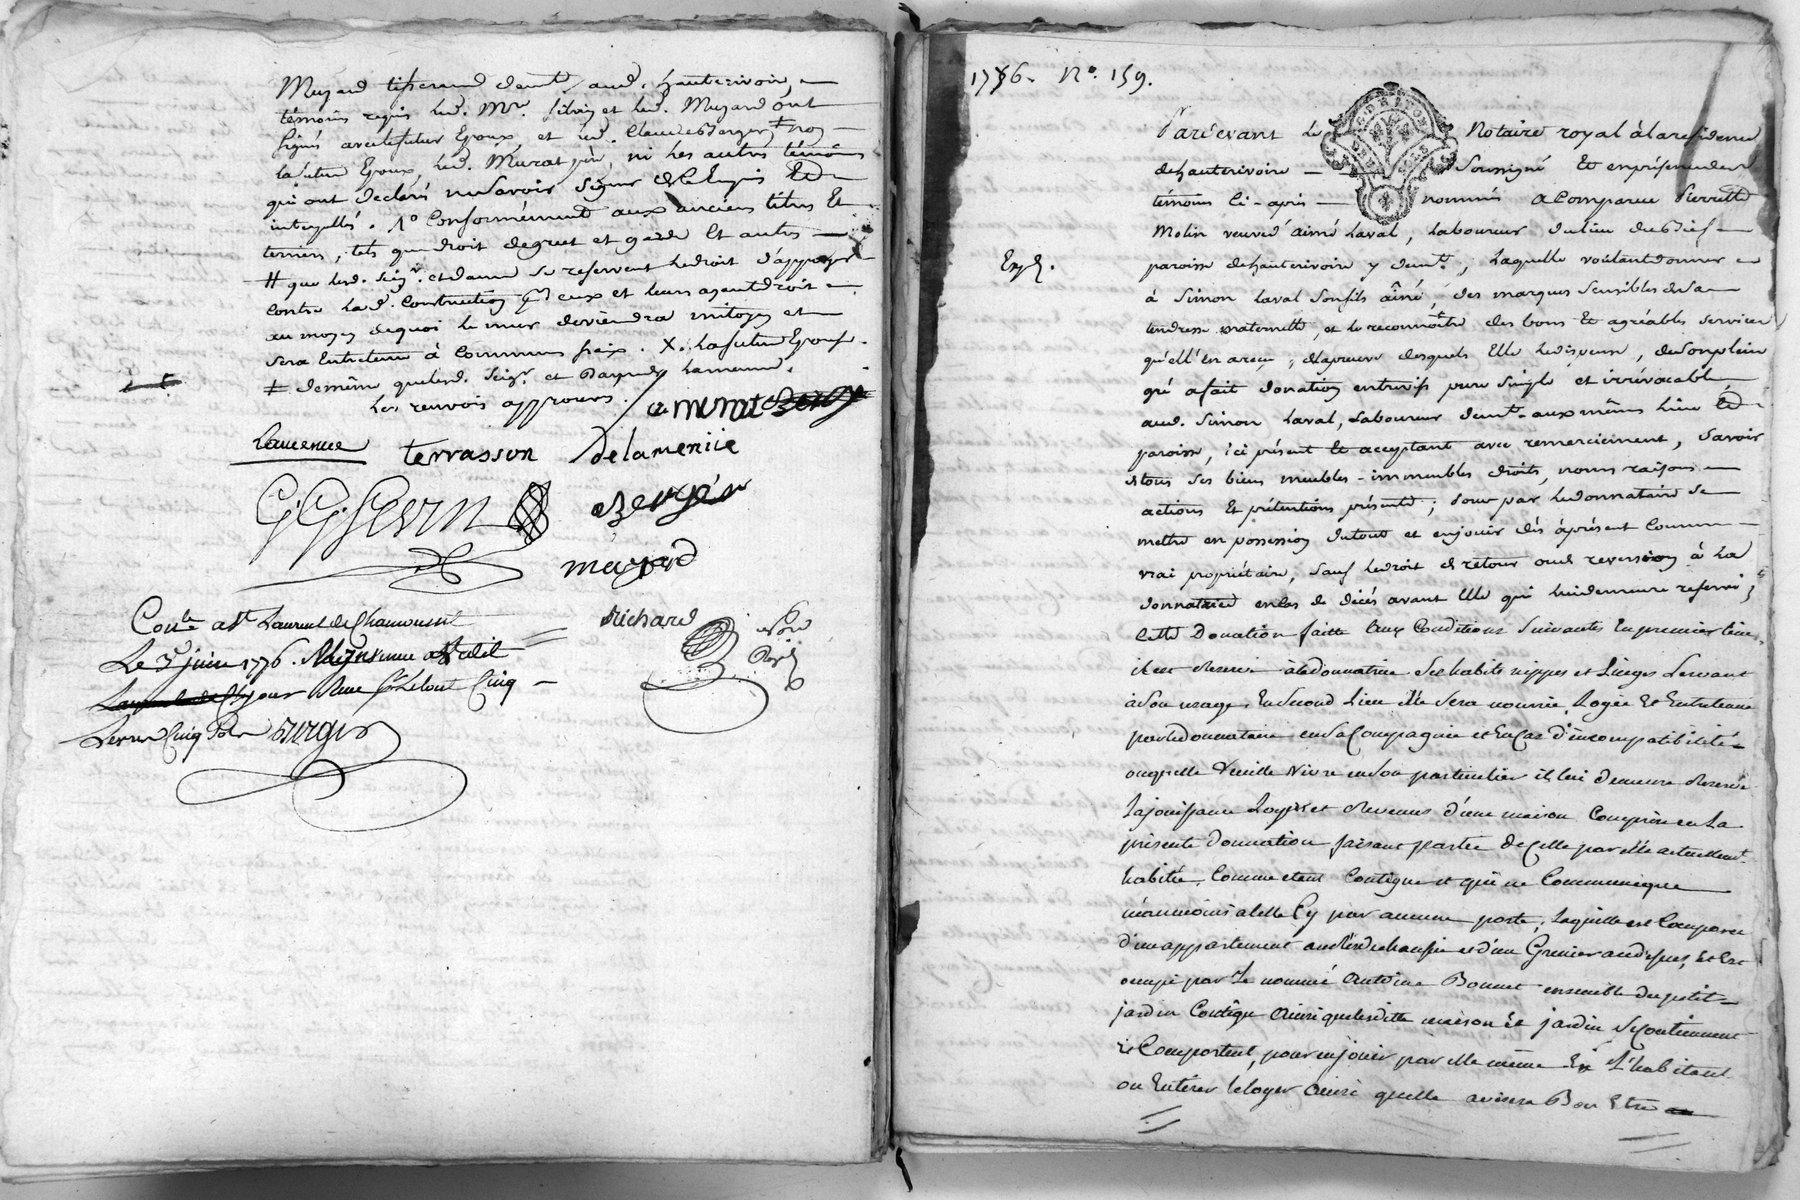 Mugard tisserand demt. aud. hauterivoir,
témoins requis led. Mre. Silvin et led. Mugard ont
signés avec le futur Epoux, et led. Claude Berger ≠ non
la future Epoux, led. Murat père, ni les autres témoins
qui ont déclarés ne savoir signer de ce enquis Et
interpellés. 1º Conformément aux anciens titres Et
terriers, tels que droit de guet et garde Et autres
# que lesd. seigr. et dame se reservent le droit d'appuyer
contre lad. construction qd. eux et leurs agent droit
au moyen de quoi le mur deviendra mitoyen et
sera Entretenu à communs frais. X. la future Epouse.
≠ de même que lesd. Seigr. et Dame de Lamenue.
Les renvois approuvés.
C. Murat
Lamenue terrasson Delameniie
G. G. Servin Berger
Mugard
Conlé a St. Laurent de Chamousset
Le 3e juin 1776.
Reçu
Cinq
Richard
Nore
Royl
1776. Nº. 159.
Pardevant Le Notaire royal à la residence
de hauterivoire Soussigné Et en présence des
témoins Ci-après nommés a Comparue Pierrette
Molin veuve d'aimé Laval, Laboureur du lieu du Brief
paroisse de hauterivoire y demte., Laquelle voulant donner
Expé.
à Simon Laval son fils aîné, des marques sensibles de sa
tendresse maternelle, et le reconnoître des bons Et agréables services
qu'ell'en a reçu, de la preuve desquels Elle le dispense, de son plein
gré a fait donation entrevifs pure simple et irrévocable
aud. Simon Laval, Laboureur demt. aux mêmes lieu Et
paroisse, ici présent Et acceptant avec remerciement, savoir
de tous ses biens meubles-immeubles droits, noms raisons
actions Et prétentions présents; pour par le donnataire se
mettre en possession du tout et en jouir dès àprésent Comme
vrai propriétaire, sauf le droit de retour ou de reversion à la
donnatrice en cas de décès avant Elle qui lui demeure reservé;
Cette Donation faitte aux Conditions suivantes En premier lieu,
il est Reservé à la donnatrice ses habits nippes et Linges servant
à son usage, En second Lieu Elle sera nourrie, Logée Et Entretenue
par le donnataire en sa Compagnie et En Cas d'incompatibilité
ou qu'elle Veuille Vivre en son particulier il lui demeure Reservé
La jouissance Loyers et Revenus d'une maison Comprise en La
présente Donnation faisant partie de Celle par elle actuellemt.
habitée, Comme étant Contigue et qui ne Communique
néanmoins a celle Cy par aucune porte, Laquelle est Composée
d'un appartement au rès de chaussée et d'un Grenier au dessus, Et Est
occupé par Le nommé Antoine Bonnet ensemble du petit
jardin Contigu Ainsi que lesditte maison et jardin se Contiennent
Et Comportent, pour en jouir par elle même En L'habitant
ou En tirer le loyer Ainsi quelle avisera Bon Etre